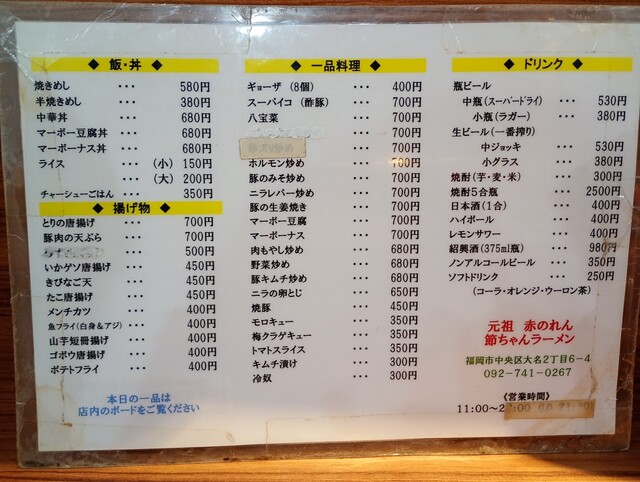 ◆ 飯・丼 ◆
焼きめし ・・・ 580円
半焼きめし ・・・ 380円
中華丼 ・・・ 680円
マーボー豆腐丼 ・・・ 680円
マーボーナス丼 ・・・ 680円
ライス ・・・ (小) 150円
・・・ (大) 200円
チャーシューごはん ・・・ 350円
◆ 揚げ物 ◆
とりの唐揚げ ・・・ 700円
豚肉の天ぷら ・・・ 700円
・・・ 500円
いかゲソ唐揚げ ・・・ 450円
きびなご天 ・・・ 450円
たこ唐揚げ ・・・ 450円
メンチカツ ・・・ 400円
魚フライ(白身&アジ) ・・・ 400円
山芋短冊揚げ ・・・ 400円
ゴボウ唐揚げ ・・・ 400円
ポテトフライ ・・・ 400円
本日の一品は
店内のボードをご覧ください
◆ 一品料理 ◆
ギョーザ (8個) ・・・ 400円
スーパイコ (酢豚) ・・・ 700円
八宝菜 ・・・ 700円
・・・ 700円
・・・ 700円
ホルモン炒め ・・・ 700円
豚のみそ炒め ・・・ 700円
ニラレバー炒め ・・・ 700円
豚の生姜焼き ・・・ 700円
マーボー豆腐 ・・・ 700円
マーボーナス ・・・ 700円
肉もやし炒め ・・・ 680円
野菜炒め ・・・ 680円
豚キムチ炒め ・・・ 680円
ニラの卵とじ ・・・ 650円
焼豚 ・・・ 450円
モロキュー ・・・ 350円
梅クラゲキュー ・・・ 350円
トマトスライス ・・・ 350円
キムチ漬け ・・・ 300円
冷奴 ・・・ 300円
◆ ドリンク ◆
瓶ビール
中瓶(スーパードライ) ・・・ 530円
小瓶(ラガー) ・・・ 380円
生ビール(一番搾り)
中ジョッキ ・・・ 530円
小グラス ・・・ 380円
焼酎(芋・麦・米) ・・・ 300円
焼酎5合瓶 ・・・ 2500円
日本酒(1合) ・・・ 400円
ハイボール ・・・ 400円
レモンサワー ・・・ 400円
紹興酒(375ml瓶) ・・・ 980円
ノンアルコールビール ・・・ 350円
ソフトドリンク ・・・ 250円
(コーラ・オレンジ・ウーロン茶)
元祖 赤のれん
節ちゃんラーメン
福岡市中央区大名2丁目6-4
092-741-0267
《営業時間》
11:00~2